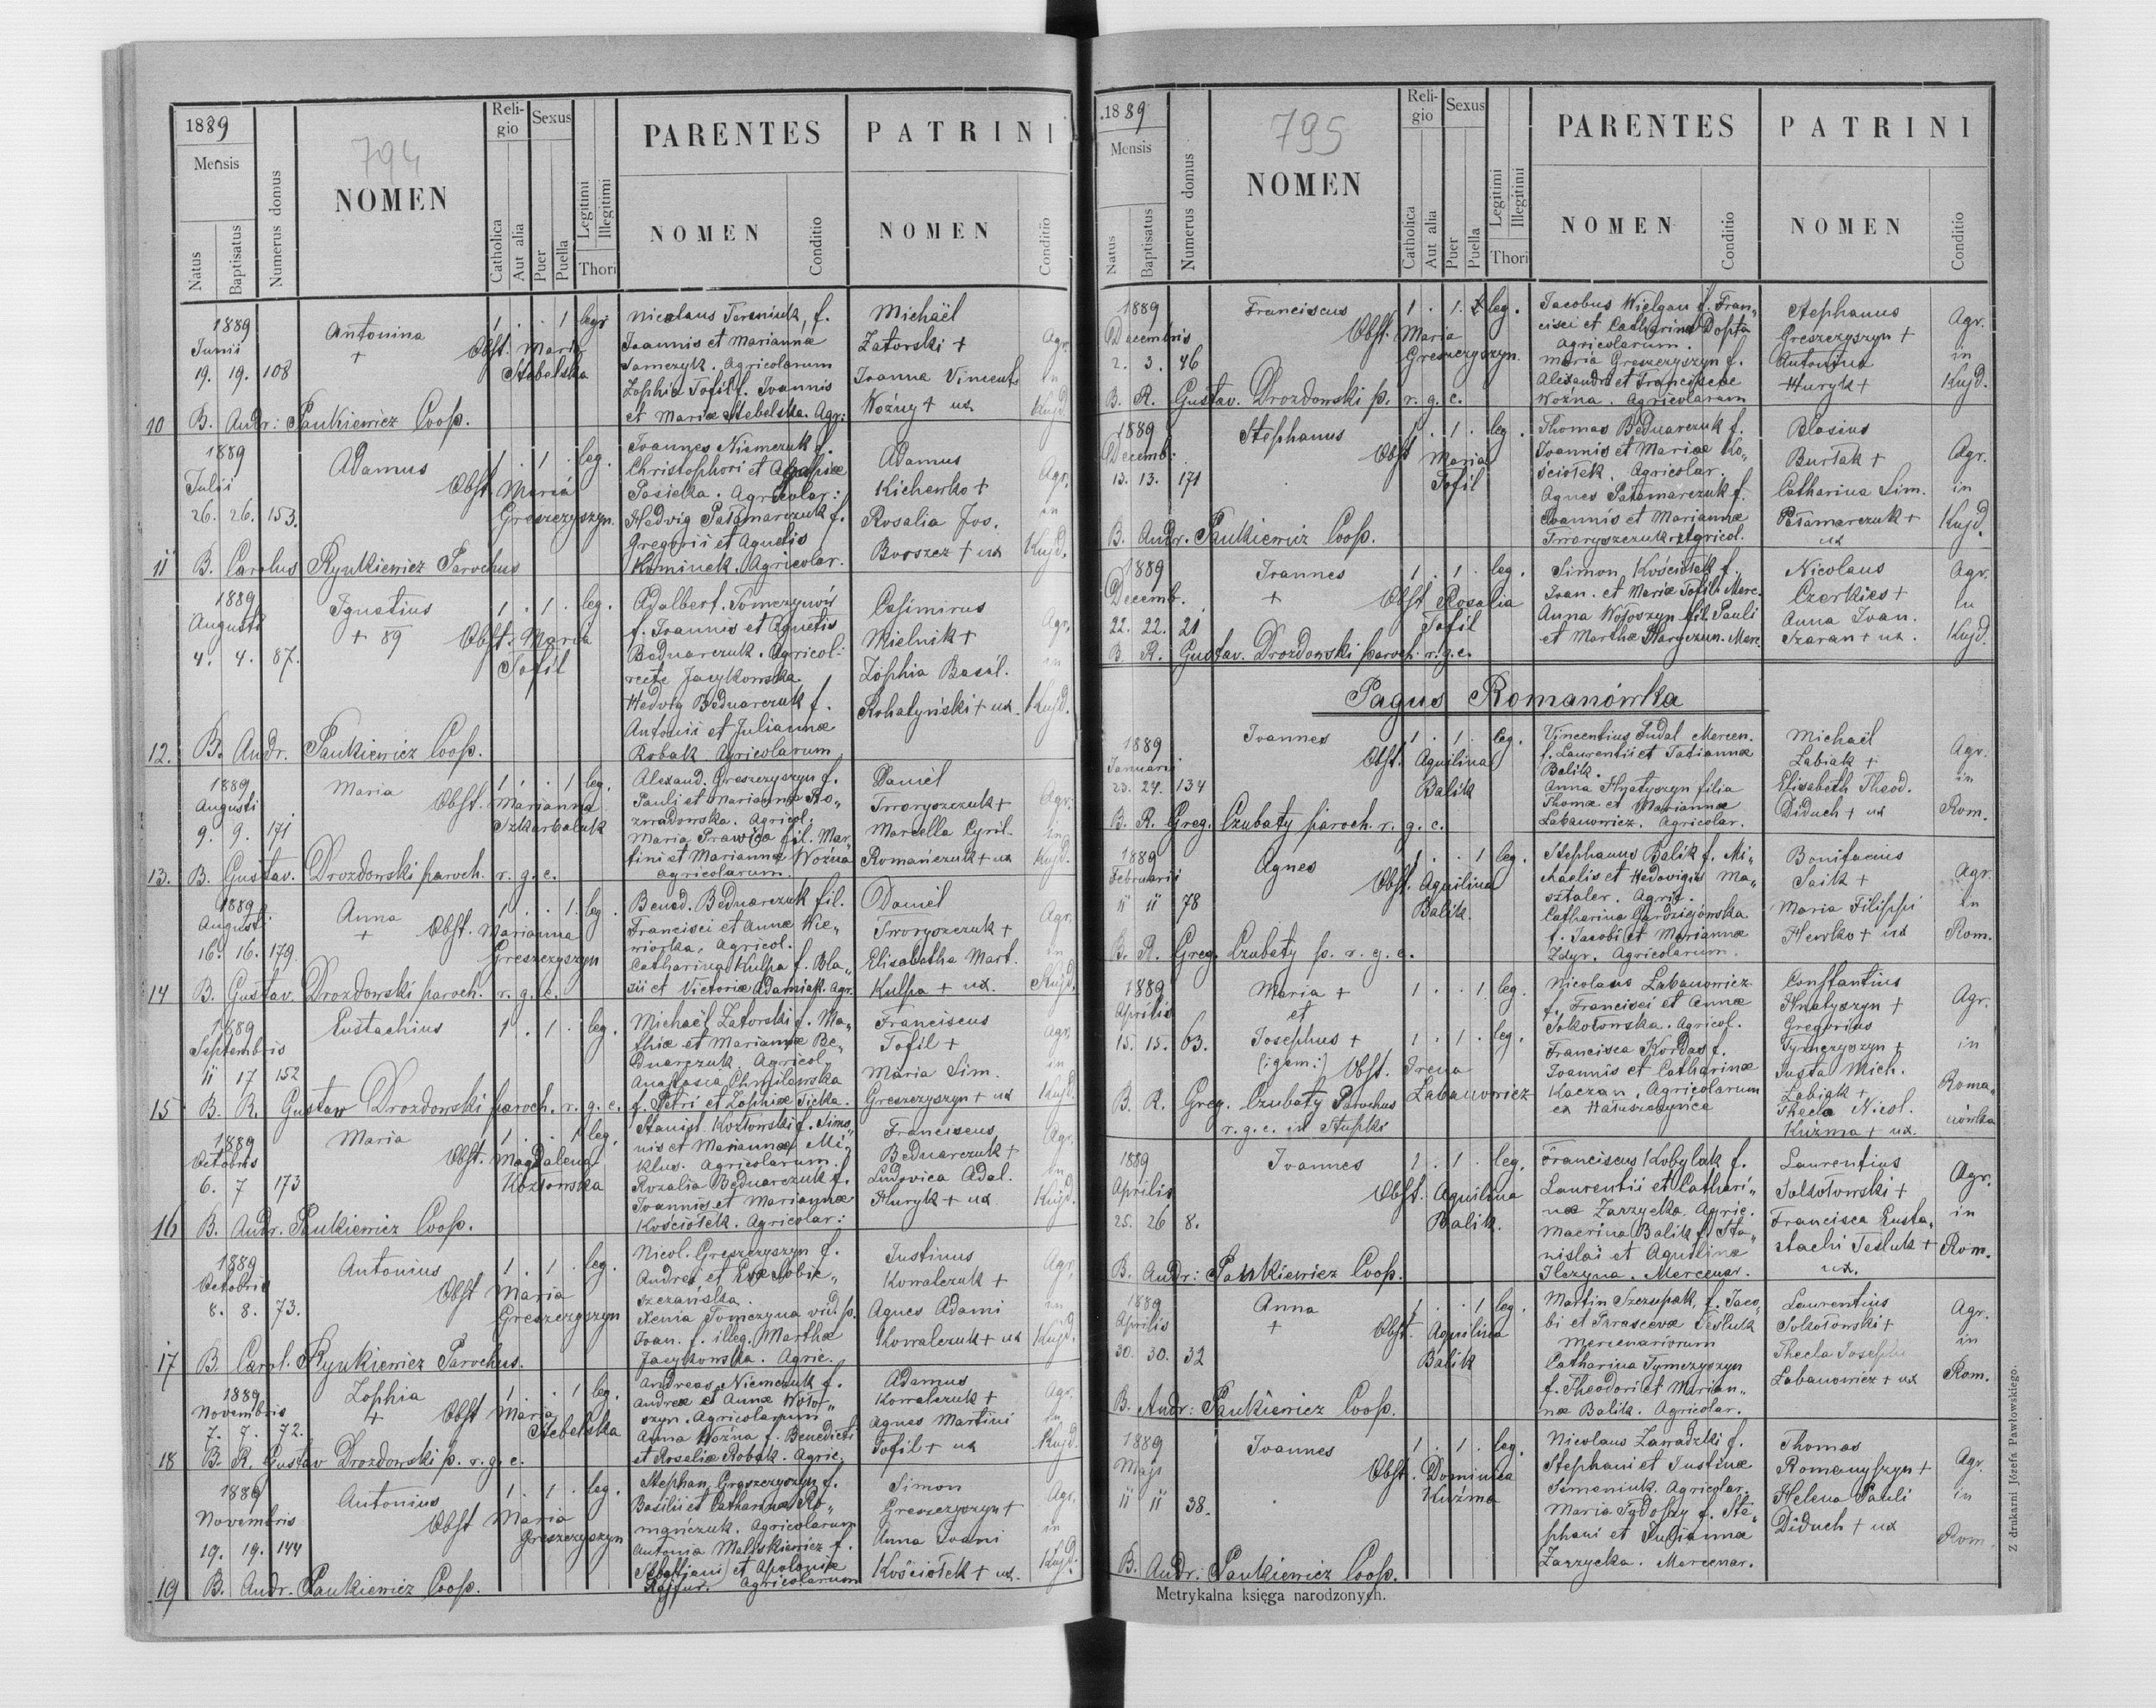 1889
794
Reli-
gio
Sexus
PARENTES
PATRINI
Mensis
Numerus domus
NOMEN
Legitimi
Illegitimi
Natus
Baptisatus
Catholica
Aut alia
Puer
Puella
Thori
NOMEN
Conditio
NOMEN
Conditio
1889
Junii
19. 19. 108
Antonina
+
1 . . 1 leg.
Obst. Maria
Stebelska
Nicolaus f.
Joannis et Marianna
Agricolarum
Zophia Tofil f. Joannis
et Mariæ Stebelska. Agr:
Michaël
Zatorski +
Joanna Vincenti
Woźny + ux
Agr.
in
Kujd.
10 B. Andr: Paukiewicz Coop.
1889
Julii
26. 26. 153.
Adamus
1 . 1 . leg.
Obst Maria
Greszczyszyn.
Joannes Niemczuk f.
Christophori et Agapiæ
Pasieka. Agricolar:
Hedvig Pałamarczuk f.
Gregorii et Agnetis
Kominek. Agricolar.
Adamus
Kichewko +
Rosalia Jos.
Boroszcz + ux
Agr.
in
Kujd.
11 B. Carolus Rynkiewicz Parochus
1889
Augusti
4. 4. 87.
Ignatius
+ 89
1 . 1 . leg.
Obst. Maria
Tofil
Adalbert. Tomczyna
f. Joannis et Agnetis
Bednarczuk. Agricol:
recte Jacykowska
Hedvig Bednarczuk f.
Antonii et Julianna
Robak. Agricolarum
Casimirus
Mielnik +
Zophia Basil.
Rohatyński + ux.
Agr.
in
Kujd.
12. B. Andr. Paukiewicz Coop.
1889
Augusti
9. 9. 171
Maria
1 . . 1 leg.
Obst. Marianna
Szkarbaluk
Alexand. Greszczyszyn f.
Pauli et Marianna Ro„
zwadowska. Agricol:
Maria Prawica fil. Mar„
tini et Marianna Woźna
agricolarum.
Daniel
Tworyszczuk +
Marcella Cyril.
Romańczuk + ux
Agr.
in
Kujd.
13. B. Gustav. Drozdowski paroch. r. g. c.
1889
Augusti
16. 16. 179
Anna
+
1 . . 1. leg.
Obst. Marianna
Greszczyszyn
Bened. Bednarczuk fil.
Francisci et Annæ Wie„
wiorka. Agricol.
Catharina Kulpa f. Bla„
sii et Victoriæ Adamiak. Agr.
Daniel
Tworyszczuk +
Elisabetha Mart.
Kulpa + ux.
Agr.
in
Kujd.
14 B. Gustav. Drozdowski paroch. r. g. c.
1889
Septembris
11 17 152
Eustachius
1 . 1 . leg.
Michaël Zatorski f. Ma„
thiæ et Marianna Be„
dnarczuk. Agricol.
Anastasia Chmilewska
f. Petri et Zophiæ Sicka.
Franciscus
Tofil +
Maria Sim.
Greszczyszyn + ux
Agr.
in
Kujd.
15 B. R. Gustaw Drozdowski paroch. r. g. c.
1889
Octobris
6. 7 173
Maria
1 . . 1 leg.
Obst. Magdalena
Kozłowska
Stanisl. Kozłowski f. Simo„
nis et Marianna Mi„
klus. Agricolarum.
Rozalia Bednarczuk f.
Joannis et Marianna
Kościołek. Agricolar:
Franciscus
Bednarczuk +
Ludovica Adal.
Huryk + ux
Agr.
in
Kujd.
16 B. Andr. Paukiewicz Coop.
1889
Octobris
8. 8. 73.
Antonius
1 . 1 . leg.
Obst Maria
Greszczyszyn
Nicol. Greszczyszyn f.
Andreæ et Evæ Sobie„
szczańska.
Xenia Tomczyna vid. p.
Joan. f. illeg. Marthæ
Jacykowska. Agric.
Justinus
Kowalczuk +
Agnes Adami
Kowalczuk + ux
Agr.
in
Kujd.
17 B. Carol. Rynkiewicz Parochus.
1889
Novembris
7. 7. 72.
Zophia
+
1 . . 1 leg.
Obst Maria
Stebelska
Andreas Niemczuk f.
Andreæ et Annæ Woło„
szyn. Agricolarum
Anna Woźna f. Benedicti
et Rosaliæ Robak. Agric.
Adamus
Kowalczuk +
Agnes Martini
Tofil + ux
Agr.
in
Kujd.
18 B. R. Gustav Drozdowski p. r. g. c.
1889
Novembris
19. 19. 144
Antonius
1 . 1 . leg.
Obst Maria
Greszczyszyn
Stephan. Greszczyszyn f.
Basilii et Catharinæ Ro„
mańczuk. Agricolarum
Antonia Maliskiewicz f.
Sebastjani et Apoloniæ
Agricolarum
Simon
Greszczyszyn +
Anna Ivani
Kościołek + ux.
Agr.
in
Kujd.
19 B. Andr. Paukiewicz Coop.
1889
795
Reli-
gio
Sexus
PARENTES
PATRINI
Mensis
Numerus domus
NOMEN
Legitimi
Illegitimi
Natus
Baptisatus
Catholica
Aut alia
Puer
Puella
Thori
NOMEN
Conditio
NOMEN
Conditio
1889
Decembris
2. 3. 46
Franciscus
1 . 1. leg.
Obst. Maria
Greszczyszyn.
Jacobus Wielgan f. Fran„
cisci et Catharina Dopta
Agricolarum.
Maria Greszczyszyn f.
Alexandri et Franciscæ
Woźna. Agricolarum
Stephanus
Greszczyszyn +
Antonina
Huryk +
Agr.
in
Kujd.
B. R. Gustav. Drozdowski p. r. g. c.
1889
Decemb.
13. 13. 171
Stephanus
1 . 1 . leg.
Obst Maria
Tofil
Thomas Bednarczuk f.
Joannis et Mariæ Ko„
ściołek. Agricolar.
Agnes Pałamarczuk f.
Joannis et Mariannæ
Tworyszczuk. Agricol.
Blasius
Burłak +
Catharina Sim.
Pałamarczuk +
ux
Agr.
in
Kujd.
B. Andr. Paukiewicz Coop.
1889
Decemb.
22. 22. 21
Joannes
+
1 . 1 . leg.
Obst Rosalia
Tofil
Simon Kościołek f.
Joan. et Mariæ Tofil. Merc.
Anna Wołoszyn fil. Pauli
et Marthæ Haryczun. Merc.
Nicolaus
Czerkies +
Anna Joan.
Szaran + ux.
Agr.
in
Kujd.
B R. Gustav. Drozdowski paroch. r. g. c.
Pagus Romanówka
1889
Januarii
23. 24. 134
Joannes
1 . 1 . leg.
Obst. Aquilina
Balik
Vincentius Dudal Mercen.
f. Laurentii et Tatiannæ
Balik.
Anna Hnatyszyn filia
Thomæ et Mariannæ
Labanowicz. Agricolar.
Michaël
Labiak +
Elisabeth Theod.
Diduch + ux
Agr.
in
Rom.
B. R. Greg. Czubaty paroch. r. g. c.
1889
Februarii
11 11 78
Agnes
1 . . 1 leg.
Obst. Aquilina
Balik.
Stephanus Balik f. Mi„
chaelis et Hedvigis Ma„
sztaler. Agric.
Catharina Gardziejowska
f. Jacobi et Mariannæ
Zdyr. Agricolarum.
Bonifacius
Saik +
Maria Filippi
Hewko + ux
Agr.
in
Rom.
B. R. Greg. Czubaty p. r. g. c.
1889
Aprilis
15. 15. 63.
Maria +
et
Josephus +
(:gem:) Obst. Irena
Labanowicz
1 . . 1 leg.
1 . 1 . leg.
Nicolaus Labanowicz
f. Francisci et Annæ
Sokołowska. Agricol.
Francisca Kordas f.
Joannis et Catharinæ
Kaczan. Agricolarum
ex Hałuszczyńce
Constantius
Hnatyszyn +
Gregorius
Tymczyszyn +
Justa Mich.
Labiak +
Thecla Nicol.
Kuźma + ux.
Agr.
in
Roma„
nówka
B. R. Greg. Czubaty Parochus
r. g. c. in Stupki
1889
Aprilis
25. 26 8.
Joannes
1 . 1 . leg.
Obst. Aquilina
Balik.
Franciscus Kobylak f.
Laurentii et Cathari„
næ Zarzycka. Agric.
Macrina Balik f. Sta„
nislai et Aquilinæ
Ilczyna. Mercenar.
Laurentius
Sokołowski +
Francisca Eusta„
stachi Tesluk +
ux.
Agr.
in
Rom.
B. Andr: Paukiewicz Coop.
1889
Aprilis
30. 30. 32
Anna
+
1 . . 1 leg.
Obst. Aquilina
Balik
Martin Szczupak, f. Jaco„
bi et Parascevæ Tesluk
Mercenariorum
Catharina Tymczyszyn
f. Theodori et Marian„
næ Balik. Agricolar.
Laurentius
Sokołowski +
Thecla Josephi
Labanowicz + ux
Agr.
in
Rom.
B. Andr: Paukiewicz Coop.
1889
Maji
11 11 38.
Joannes
1 . 1 . leg.
Obst. Dominica
Kuźma
Nicolaus Zawadzki f.
Stephani et Justinæ
Semeniuk. Agricolar.
Maria f. Ste„
phani et Juliannæ
Zarzycka. Mercenar.
Thomas
Romanyszyn +
Helena Pauli
Diduch + ux
Agr.
in
Rom.
B. Andr: Paukiewicz Coop.
Metrykalna księga narodzonych.
Z drukarni Józefa Pawłowskiego.